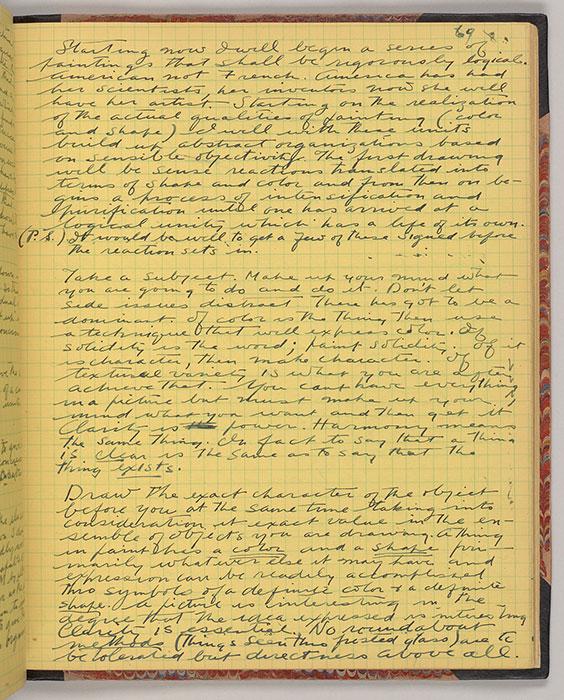 69
Starting now I will begin a series of
paintings that shall be rigorously logical.
American not French. America has had
her scientists, her inventors now she will
have her artist. Starting on the realization
of the actual qualities of painting (color
and shape) I will with these units
build up abstract organizations based
on sensible objectivity. The first drawing
will be sense reactions translated into
terms of shape and color and from then on be-
gins a process of intensification and
purification until one has arrived at a
logical unity which has a life of its own.
(P.S.) It would be well to get a few of these signed before
the reaction sets in.
Take a subject. Make up your mind what
you are going to do and do it. Don't let
side issues distract. There has got to be a
dominant. If color is the thing then use
a technique that will express color. If
solidity is the word; paint solidity. If it
is character, then make character. If
textural variety is what you are after
achieve that. You cant have everything
in a picture but must make up your
mind what you want and then get it
Clarity is power. Harmony means
the same thing. In fact to say that a thing
is clear is the same as to say that the
thing exists.
Draw the exact character of the object
before you at the same time taking into
consideration it exact value in the en-
semble of objects you are drawing. A thing
in paint has a color and a shape pri-
marily whatever else it may have and
expression can be readily accomplished
thru symbols of a definite color & a definite
shape. A picture is interesting in the
degree that the idea expressed is interesting
Clarity is essential. No roundabout
methods (things seen thru frosted glass) are to
be tolerated but directness above all.